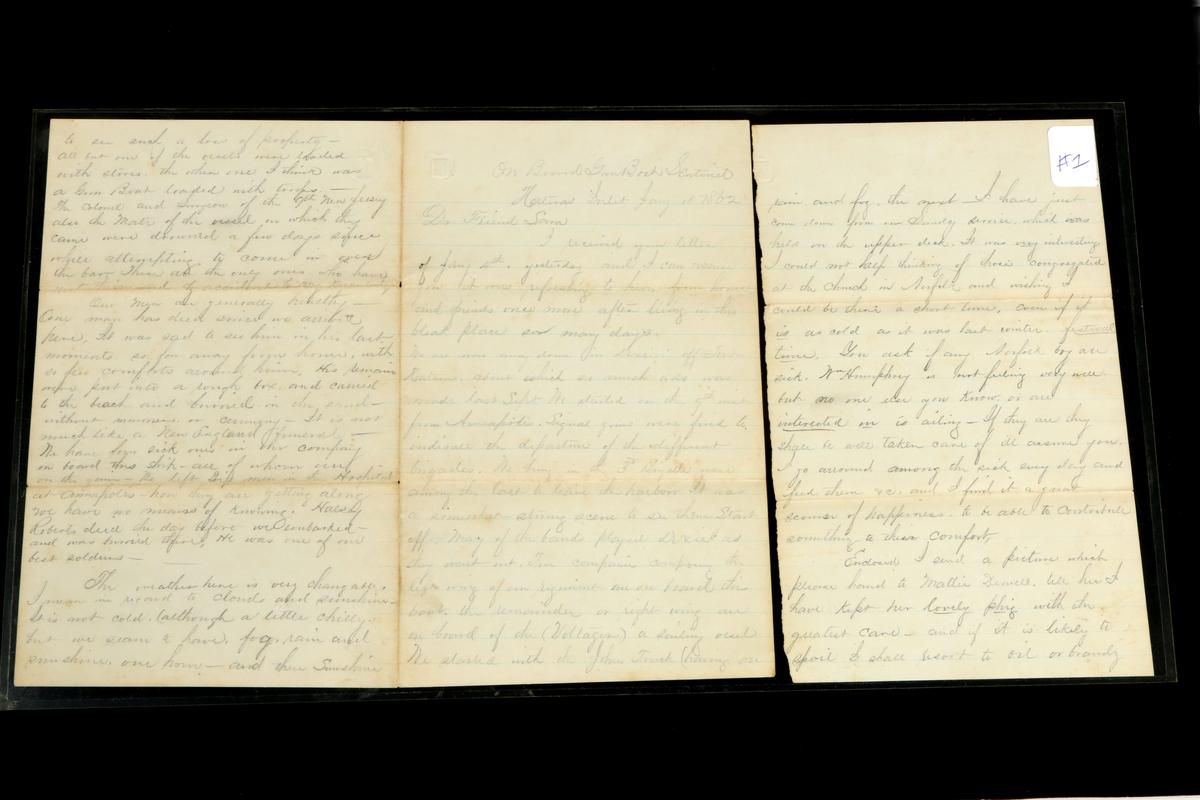 to see such a loss of property —
all but one of the vessels were loaded
with stores. the other one I think was
a Gun Boat loaded with troops. —
The Colonel and Surgeon of the 9th New Jersey
also the Mate of the vessel in which they
came were drowned a few days since
while attempting to come in over
the bar. These are the only ones who have
met this end of accident
Our men are generally healthy —
One man has died since we arrived
here. It was sad to see him in his last
moments so far away from home, with
so few comforts around him. His remains
were put into a rough box, and carried
to the beach and burried in the sand —
without mourners or ceremony — It is not
much like a New England funeral —
We have four sick ones in our company
on board this ship — all of whom were
on the gain — We left men in the Hospital
at Annapolis how they are getting along
we have no means of knowing. Halsey
Roberts died the day before we embarked —
and was burried there, He was one of our
best soldiers —
The weather here is very changable.
I mean in regard to clouds and sunshine —
It is not cold. (although a little chilly.
but we seem to have, fog, rain and
sunshine. one hour — and then Sunshine
On Board Gun Boat Sentinel
Hatteras Inlet Jany 1862
Dr Friend Sara
I received your letter
of Jany 4th. yesterday and I can assure
you it was refreshing to hear from home
and friends once more after living in this
bleak place so many days.
We are now lying down in off Fort
about which so much ado was
made last Sept We started on the 9th inst
from Annapolis. Signal guns were fired to
indicate the departure of the different
brigades. We being in the 3d Brigade were
among the last to leave the harbor It was
a somewhat strong scene to see them Start
off. Many of the bands played Dixie as
they went out. Five companies comprising the
left wing of our regiment are on board this
boat the remainder or right wing are
on board of the (Voltaguer) a sailing vessel
We started with the John Trucks (having on
#1
rain and fog, the next — I have just
come down from our Sunday service. which was
held on the upper deck. It was very interesting
I could not help thinking of those congregated
at the Church in Norfolk and wishing I
could be there a short time, even if it
is as cold as it was last winter festival
time. You ask if any Norfolk boys are
sick. Wm Humphrey is not feeling very well
but no one else you know or are
interested in is ailing — If they are they
shall be well taken care of Ill assure you.
I go arround among the sick every day and
feed them &c. and I find it a great
source of happiness. to be able to contribute
something to their comfort,
Enclosed I send a picture which
please hand to Mattie Sewell. tell her I
have kept her lovely phiz with the
greatest care — and if it is likely to
spoil I shall resort to oil or brandy